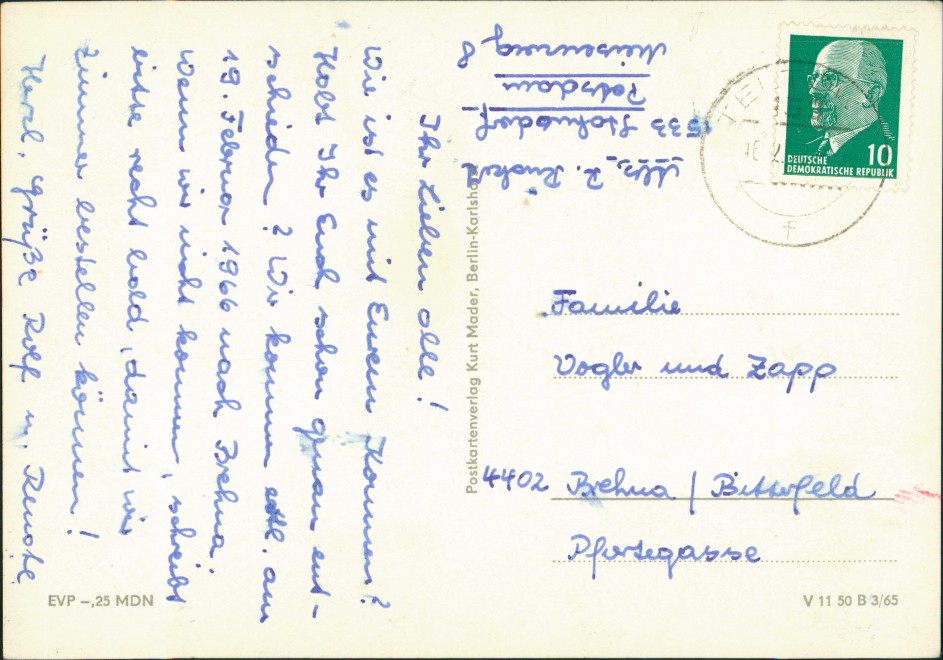 Ihr Lieben alle!
Wie ist es mit Eurem Kommen?
Habt Ihr Euch schon genau ent-
schieden? Wir kommen evtl. am
19. Februar 1966 nach Brehna.
Wenn wir nicht kommen, schreibt
bitte recht bald, damit wir
Zimmer bestellen können!
Herzl. Grüße Rolf u. Renate
Abs. R.
1533 Stahnsdorf
Potsdam
Meisenweg 8
Postkartenverlag Kurt Mader, Berlin-Karlshorst
DEUTSCHE
DEMOKRATISCHE REPUBLIK
10
TEL
f
Familie
Vogler und Zapp
4402 Brehna / Bitterfeld
Pfortegasse
EVP –,25 MDN
V 11 50 B 3/65